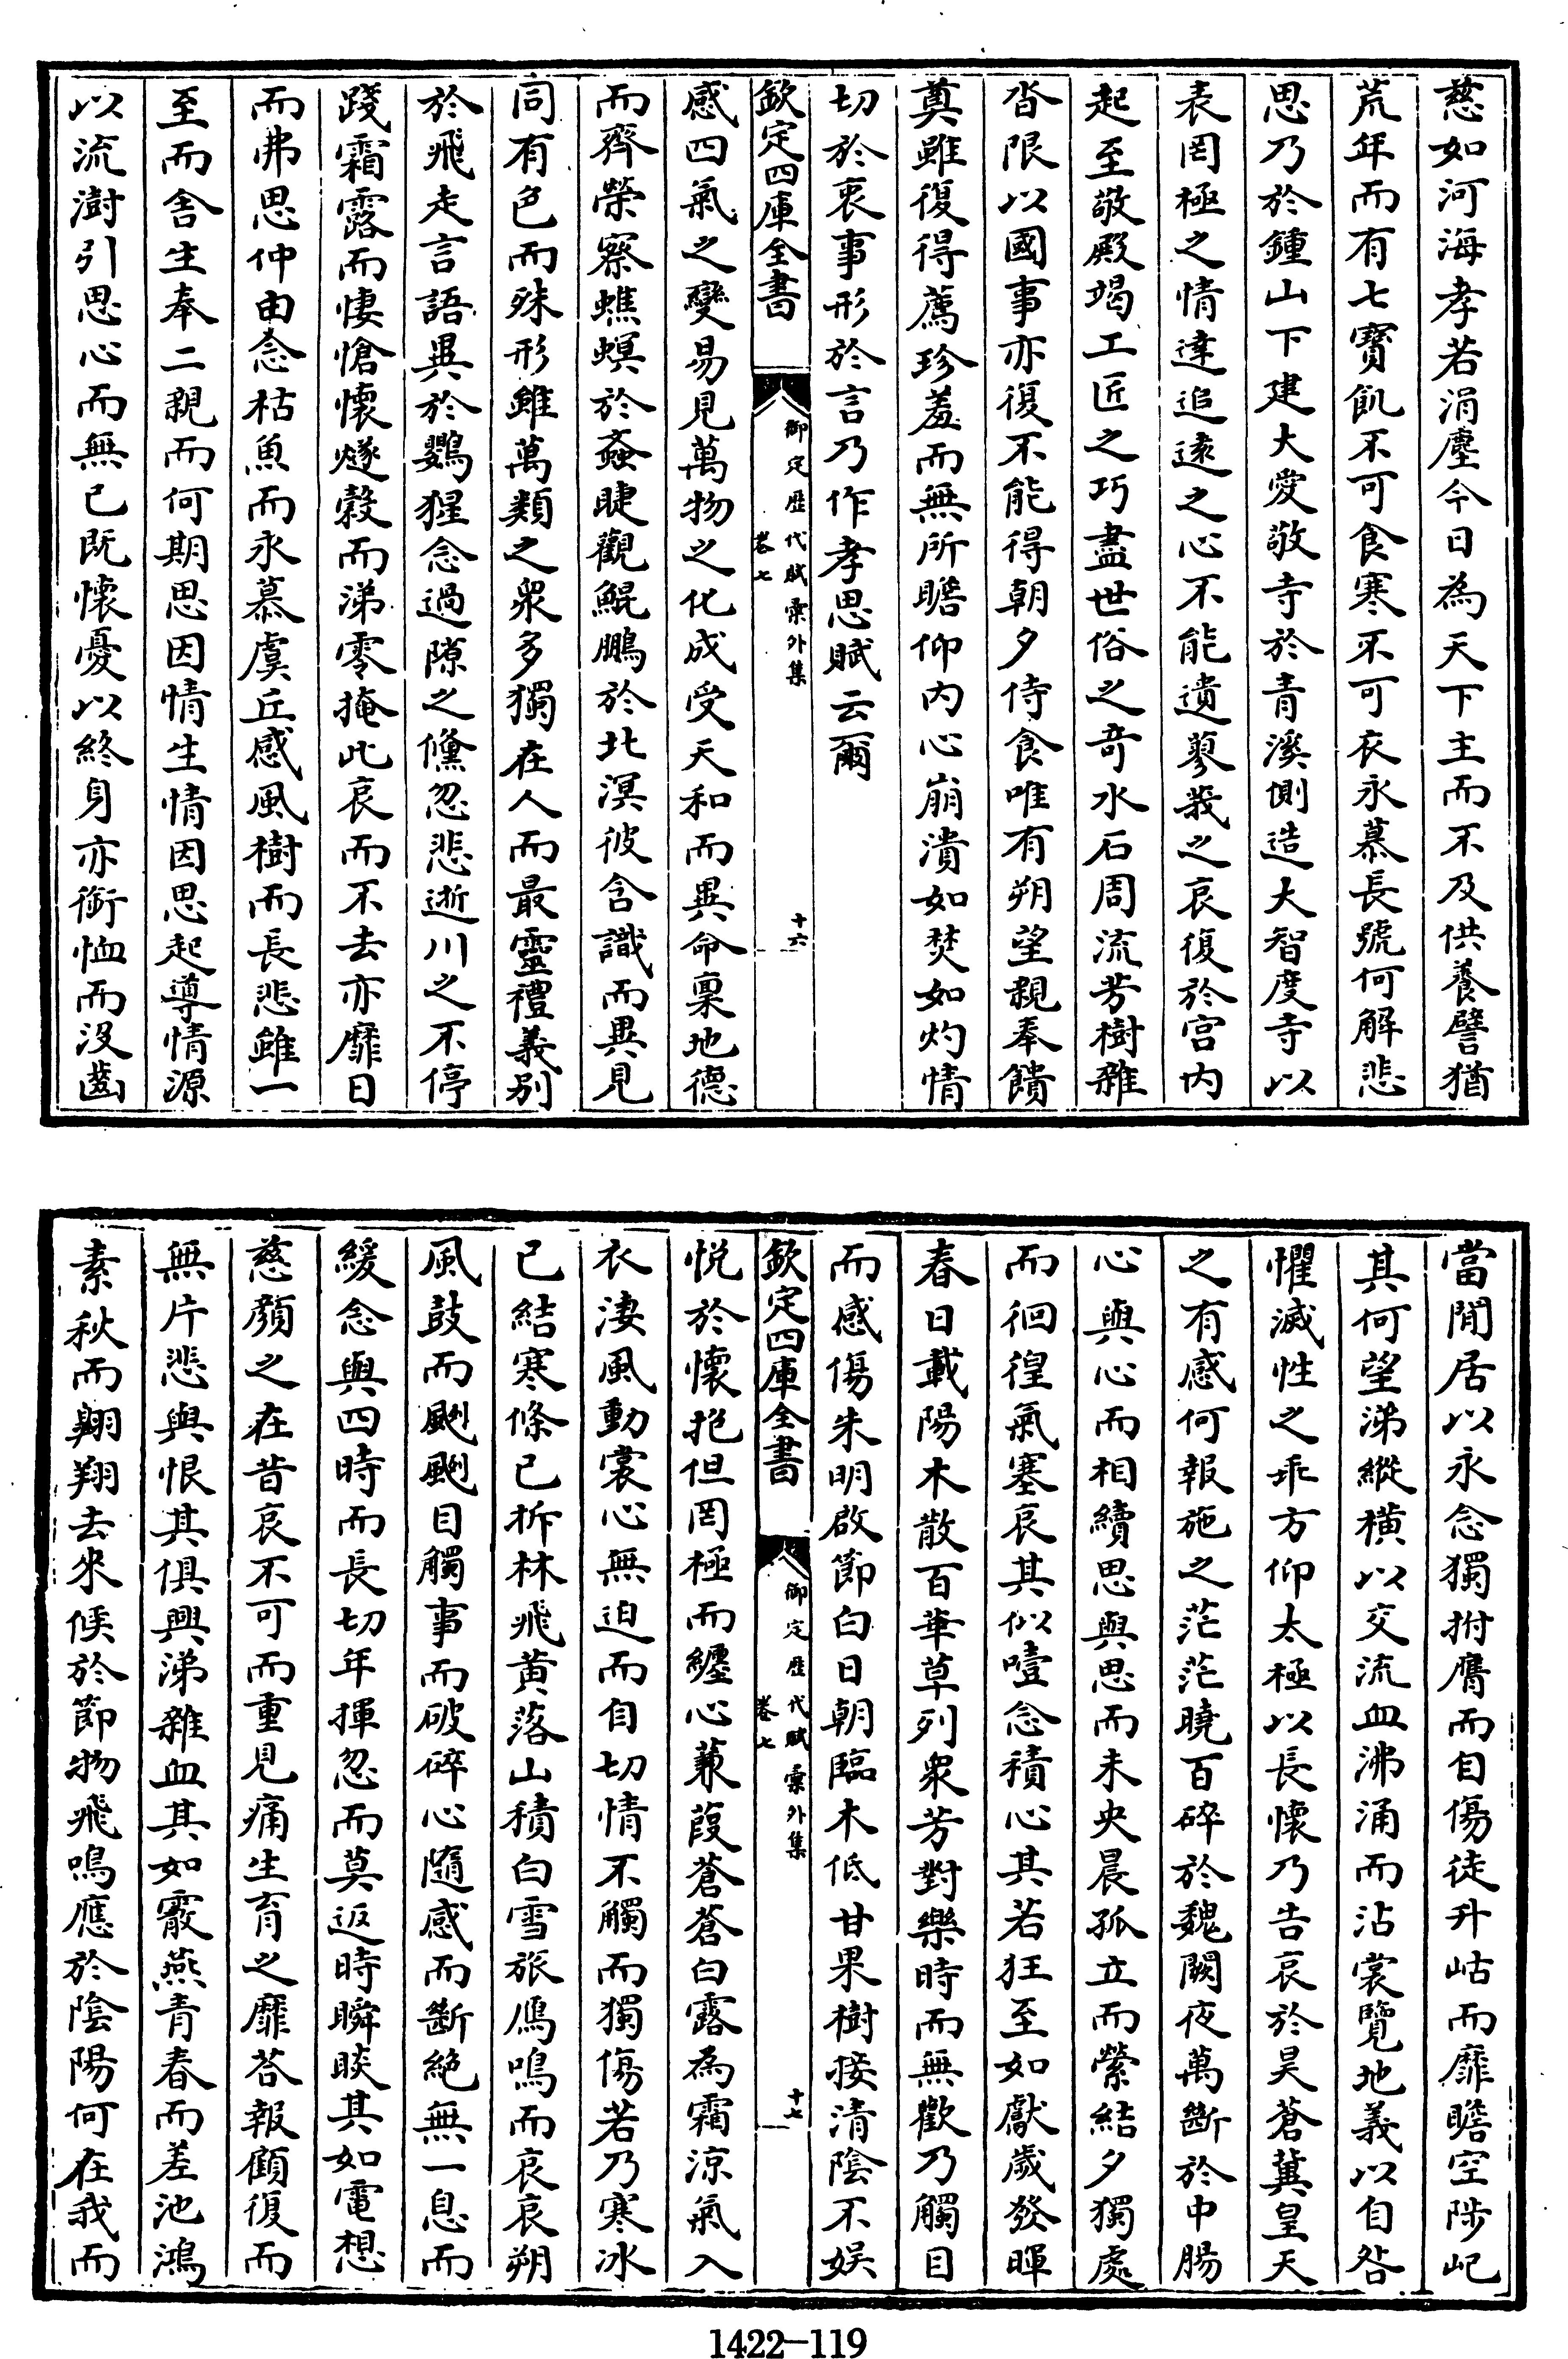 慈如河海孝若涓塵今日為天下主而不及供養譬猶
荒年而有七寳飢不可食寒不可衣永慕長號何解悲
思乃於鍾山下建大愛敬寺於青溪側造大智度寺以
表罔極之情達追逺之心不能遺蓼莪之哀復於宫内
起至敬殿竭工匠之巧盡世俗之竒水石周流芳樹雜
沓限以國事亦復不能得朝夕侍食唯有朔望親奉饋
奠雖復得薦珍羞而無所瞻仰内心崩潰如焚如灼情
切於衷事形於言乃作孝思賦云爾
欽定四庫全書
御定歴代賦彙外集
卷七
十六
感四氣之變易見萬物之化成受天和而異命稟地德
而齊榮察蟭螟於蚉睫觀鯤鵬於北溟彼含識而異見
同有色而殊形雖萬類之衆多獨在人而最靈禮義别
於飛走言語異於鸚猩念過隙之儵忽悲逝川之不停
踐霜露而悽愴懷燧榖而涕零掩此哀而不去亦靡日
而弗思仲由念枯魚而永慕虞丘感風樹而長悲雖一
至而舍生奉二親而何期思因情生情因思起導情源
以流澍引思心而無已既懷憂以終身亦銜恤而没齒
當閒居以永念獨拊膺而自傷徒升岵而靡瞻空陟屺
其何望涕縱横以交流血沸涌而沾裳覽地義以自咎
懼滅性之乖方仰太極以長懷乃告哀於昊蒼冀皇天
之有感何報施之茫茫曉百碎於魏闕夜萬斷於中腸
心與心而相續思與思而未央晨孤立而縈結夕獨處
而徊徨氣塞哀其似噎念積心其若狂至如獻歲發暉
春日載陽木散百華草列衆芳對樂時而無歡乃觸目
而感傷朱明啟節白日朝臨木低甘果樹接清陰不娱
欽定四庫全書
御定歴代賦彙外集
卷七
十七
悦於懷抱但罔極而纒心蒹葭蒼蒼白露為霜涼氣入
衣淒風動裳心無迫而自切情不觸而獨傷若乃寒冰
已結寒條已折林飛黄落山積白雪旅鴈鳴而哀哀朔
風鼓而颲颲目觸事而破碎心隨感而斷絶無一息而
緩念與四時而長切年揮忽而莫返時瞬睒其如電想
慈顔之在昔哀不可而重見痛生育之靡荅報顧復而
無片悲與恨其俱興涕雜血其如霰燕青春而差池鴻
素秋而翱翔去來候於節物飛鳴應於陰陽何在我而
1422-119